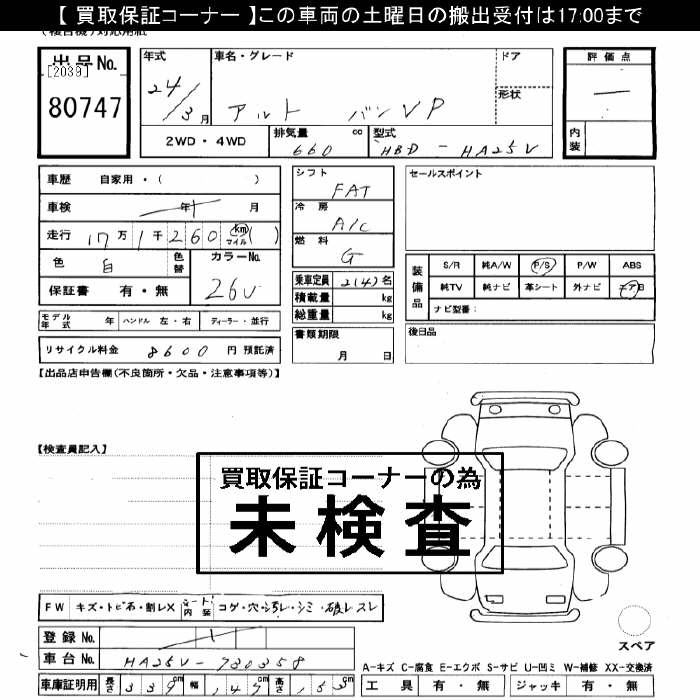 【 買取保証コーナー 】この車両の土曜日の搬出受付は17:00まで
出品No.
[2039]
80747
年式
24/3月
車名・グレード
アルト バンVP
ドア
形状
評価点
—
内装
2WD・4WD
排気量 660 cc
型式 HBD-HA25V
車歴 自家用・( )
車検 年 月
走行 17万1千260 km マイル ( )
色 白 色替
カラーNo. 26U
保証書 有・無
モデル年式 年 ハンドル 左・右 ディーラー・並行
リサイクル料金 8600 円 預託済
シフト FAT
冷房 A/C
燃料 G
乗車定員 2(4)名
積載量 kg
総重量 kg
書類期限 月 日
セールスポイント
装備品
S/R 純A/W P/S P/W ABS
純TV 純ナビ 革シート 外ナビ エアB
ナビ型番:
後日品
【出品店申告欄(不良箇所・欠品・注意事項等)】
【検査員記入】
買取保証コーナーの為
未検査
FW キズ・トビ石・割レX シート内装 コゲ・穴・汚レ・シミ・破レスレ
登録No.
車台No. HA25V-730358
車庫証明用 長さ 339cm 幅 147cm 高さ 153cm
スペア
A-キズ C-腐食 E-エクボ S-サビ U-凹ミ W-補修 XX-交換済
工具 有・無 ジャッキ 有・無